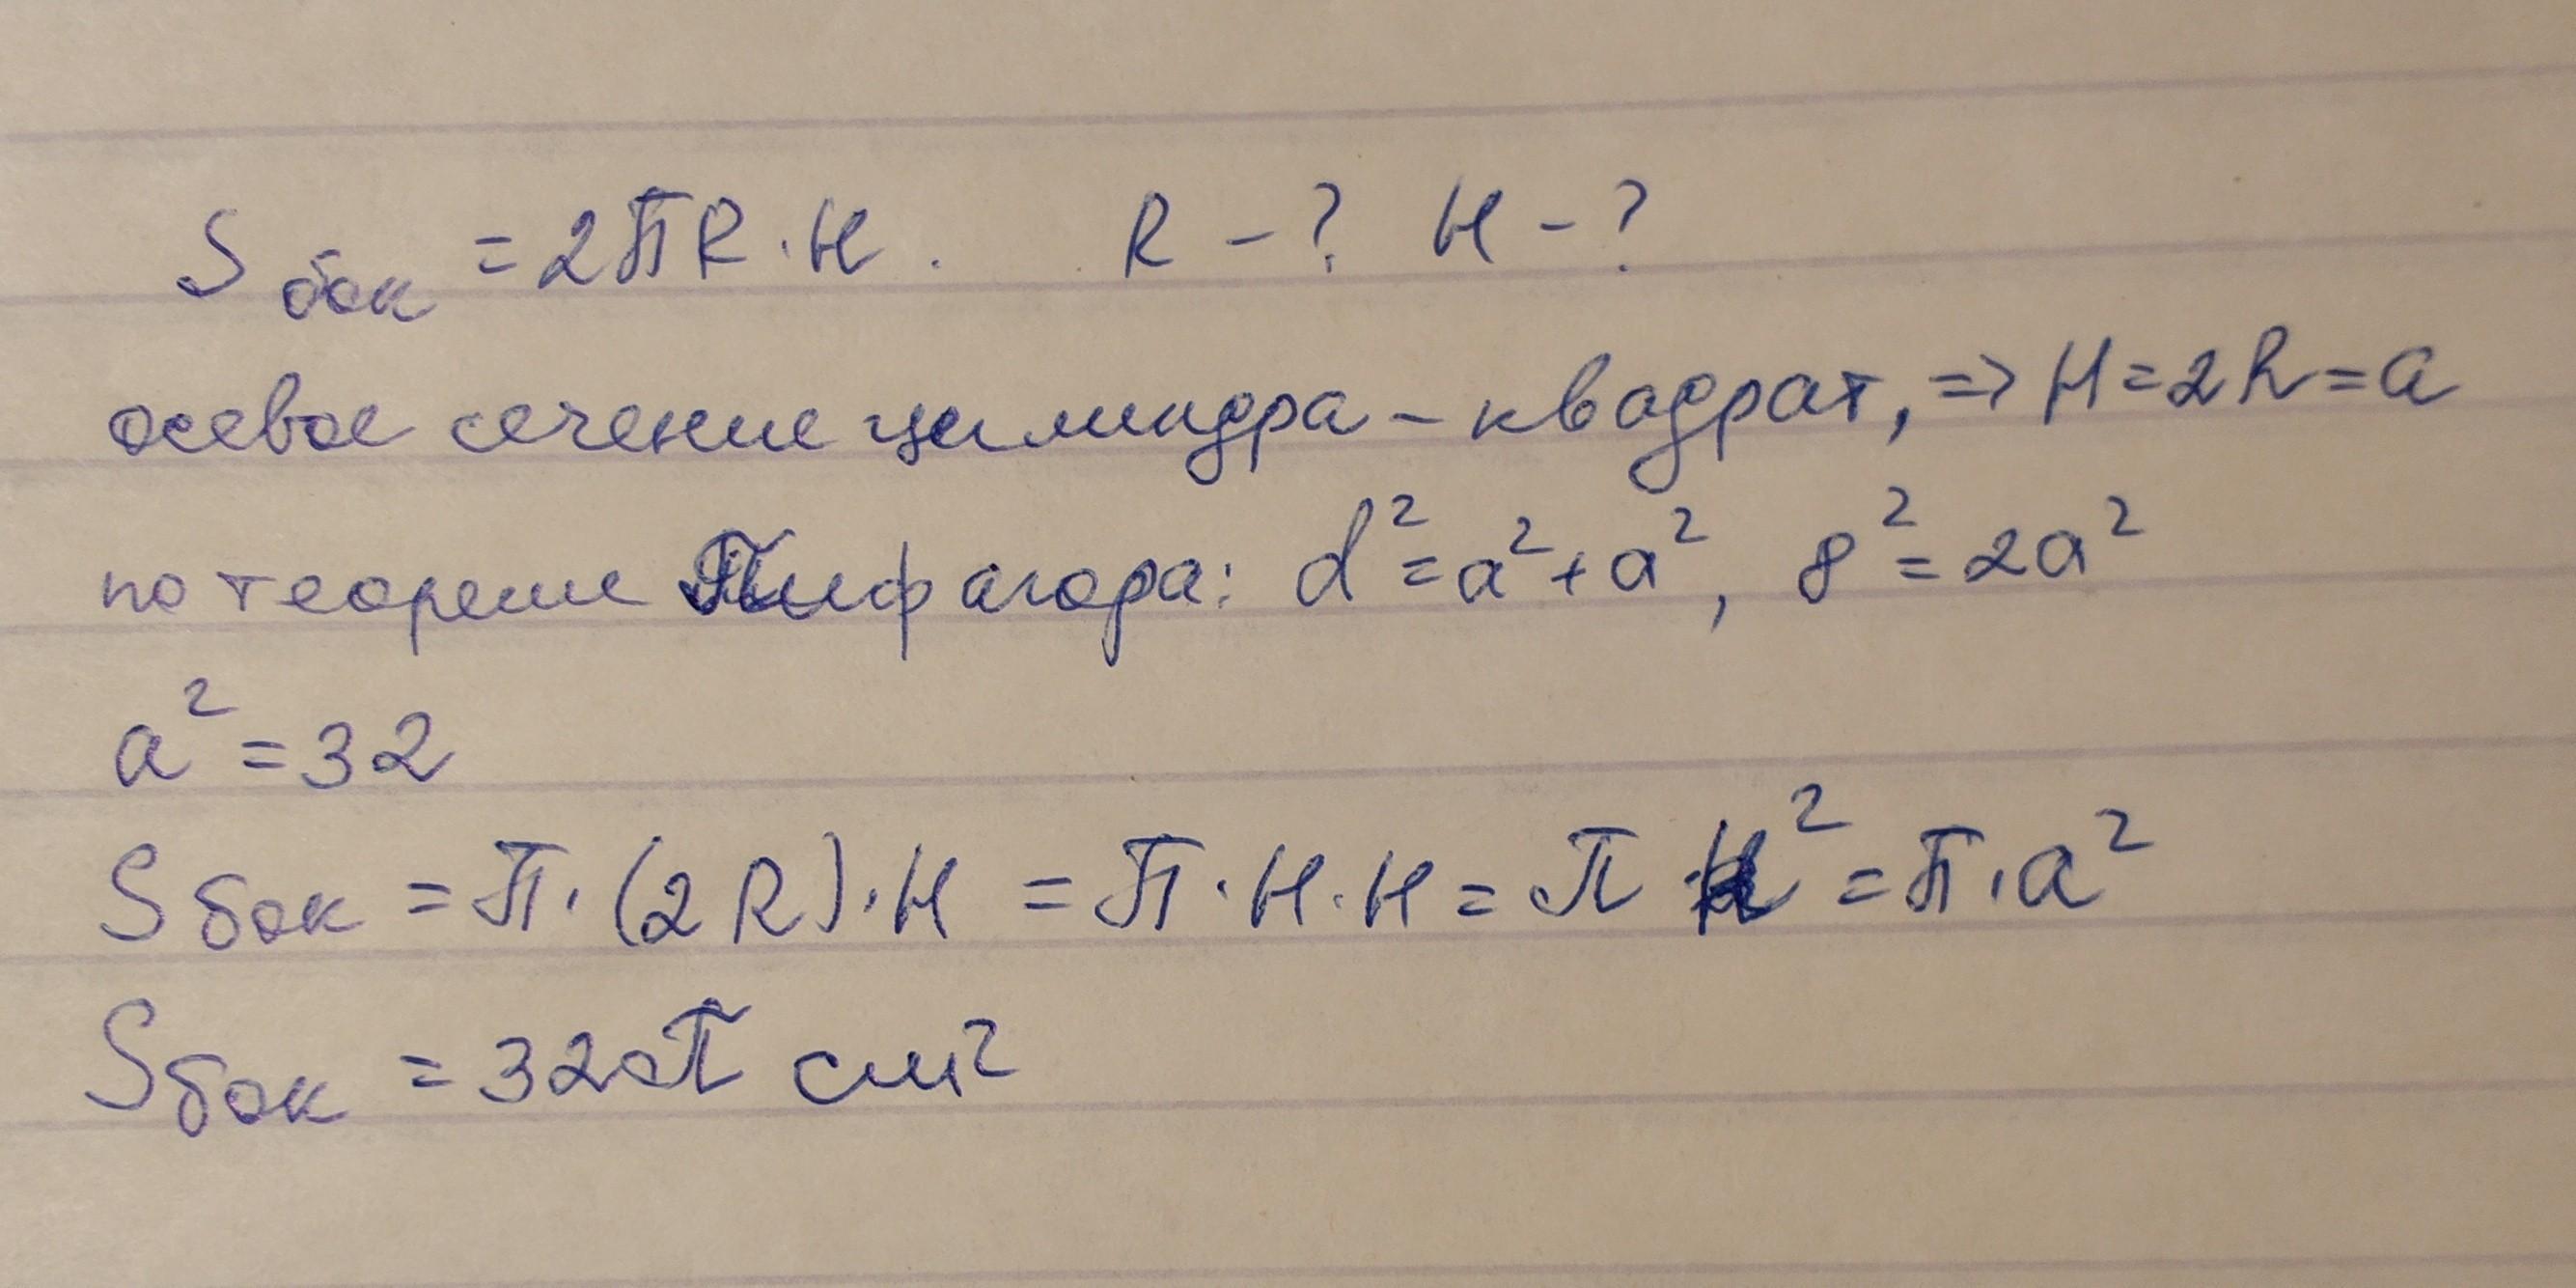 S бок = 2πR·H. R - ? H - ?
осевое сечение цилиндра - квадрат, => H = 2R = a
по теореме Пифагора: d² = a² + a², 8² = 2a²
a² = 32
S бок = π·(2R)·H = π·H·H = π H² = π·a²
S бок = 32π см²